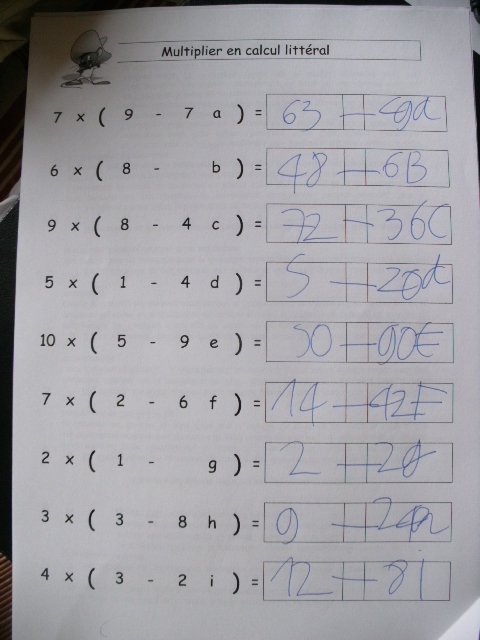 Multiplier en calcul littéral
7 x ( 9 - 7 a ) = 63 - 49a
6 x ( 8 - b ) = 48 - 6B
9 x ( 8 - 4 c ) = 72 - 36C
5 x ( 1 - 4 d ) = 5 - 20d
10 x ( 5 - 9 e ) = 50 - 90E
7 x ( 2 - 6 f ) = 14 - 42F
2 x ( 1 - g ) = 2 - 2g
3 x ( 3 - 8 h ) = 9 - 24h
4 x ( 3 - 2 i ) = 12 - 8I